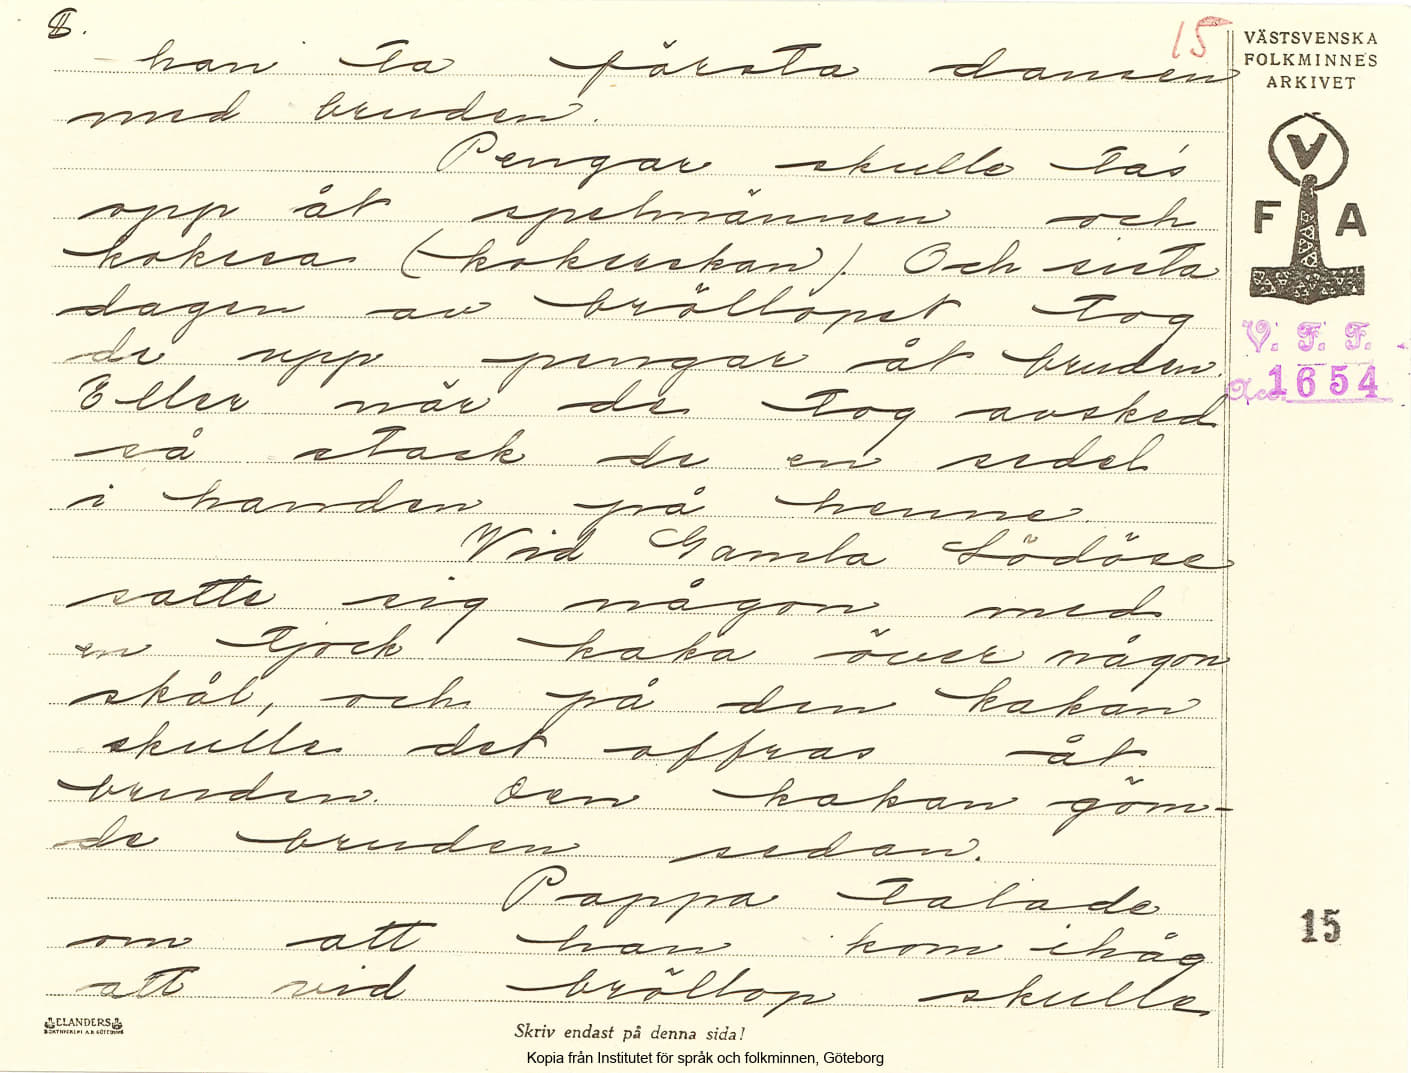 8.
15
VÄSTSVENSKA
FOLKMINNES
ARKIVET
V
F A
V. F. F.
Acc. 1654
han ta första dansen
med bruden.
Pengar skulle ta's
opp åt spelmännen och
kokesa (kokerskan). Och sista
dagen av bröllopet tog
de upp pengar åt bruden.
Eller när de tog avsked
så stack de en sedel
i handen på henne.
Vid Gamla Lödöse
satte sig någon med
en tjock kaka över någon
skål, och på den kakan
skulle det offras åt
bruden. Den kakan göm-
de bruden sedan.
Pappa talade
om att han kom ihåg
att vid bröllop skulle
15
ELANDERS
Skriv endast på denna sida!
Kopia från Institutet för språk och folkminnen, Göteborg